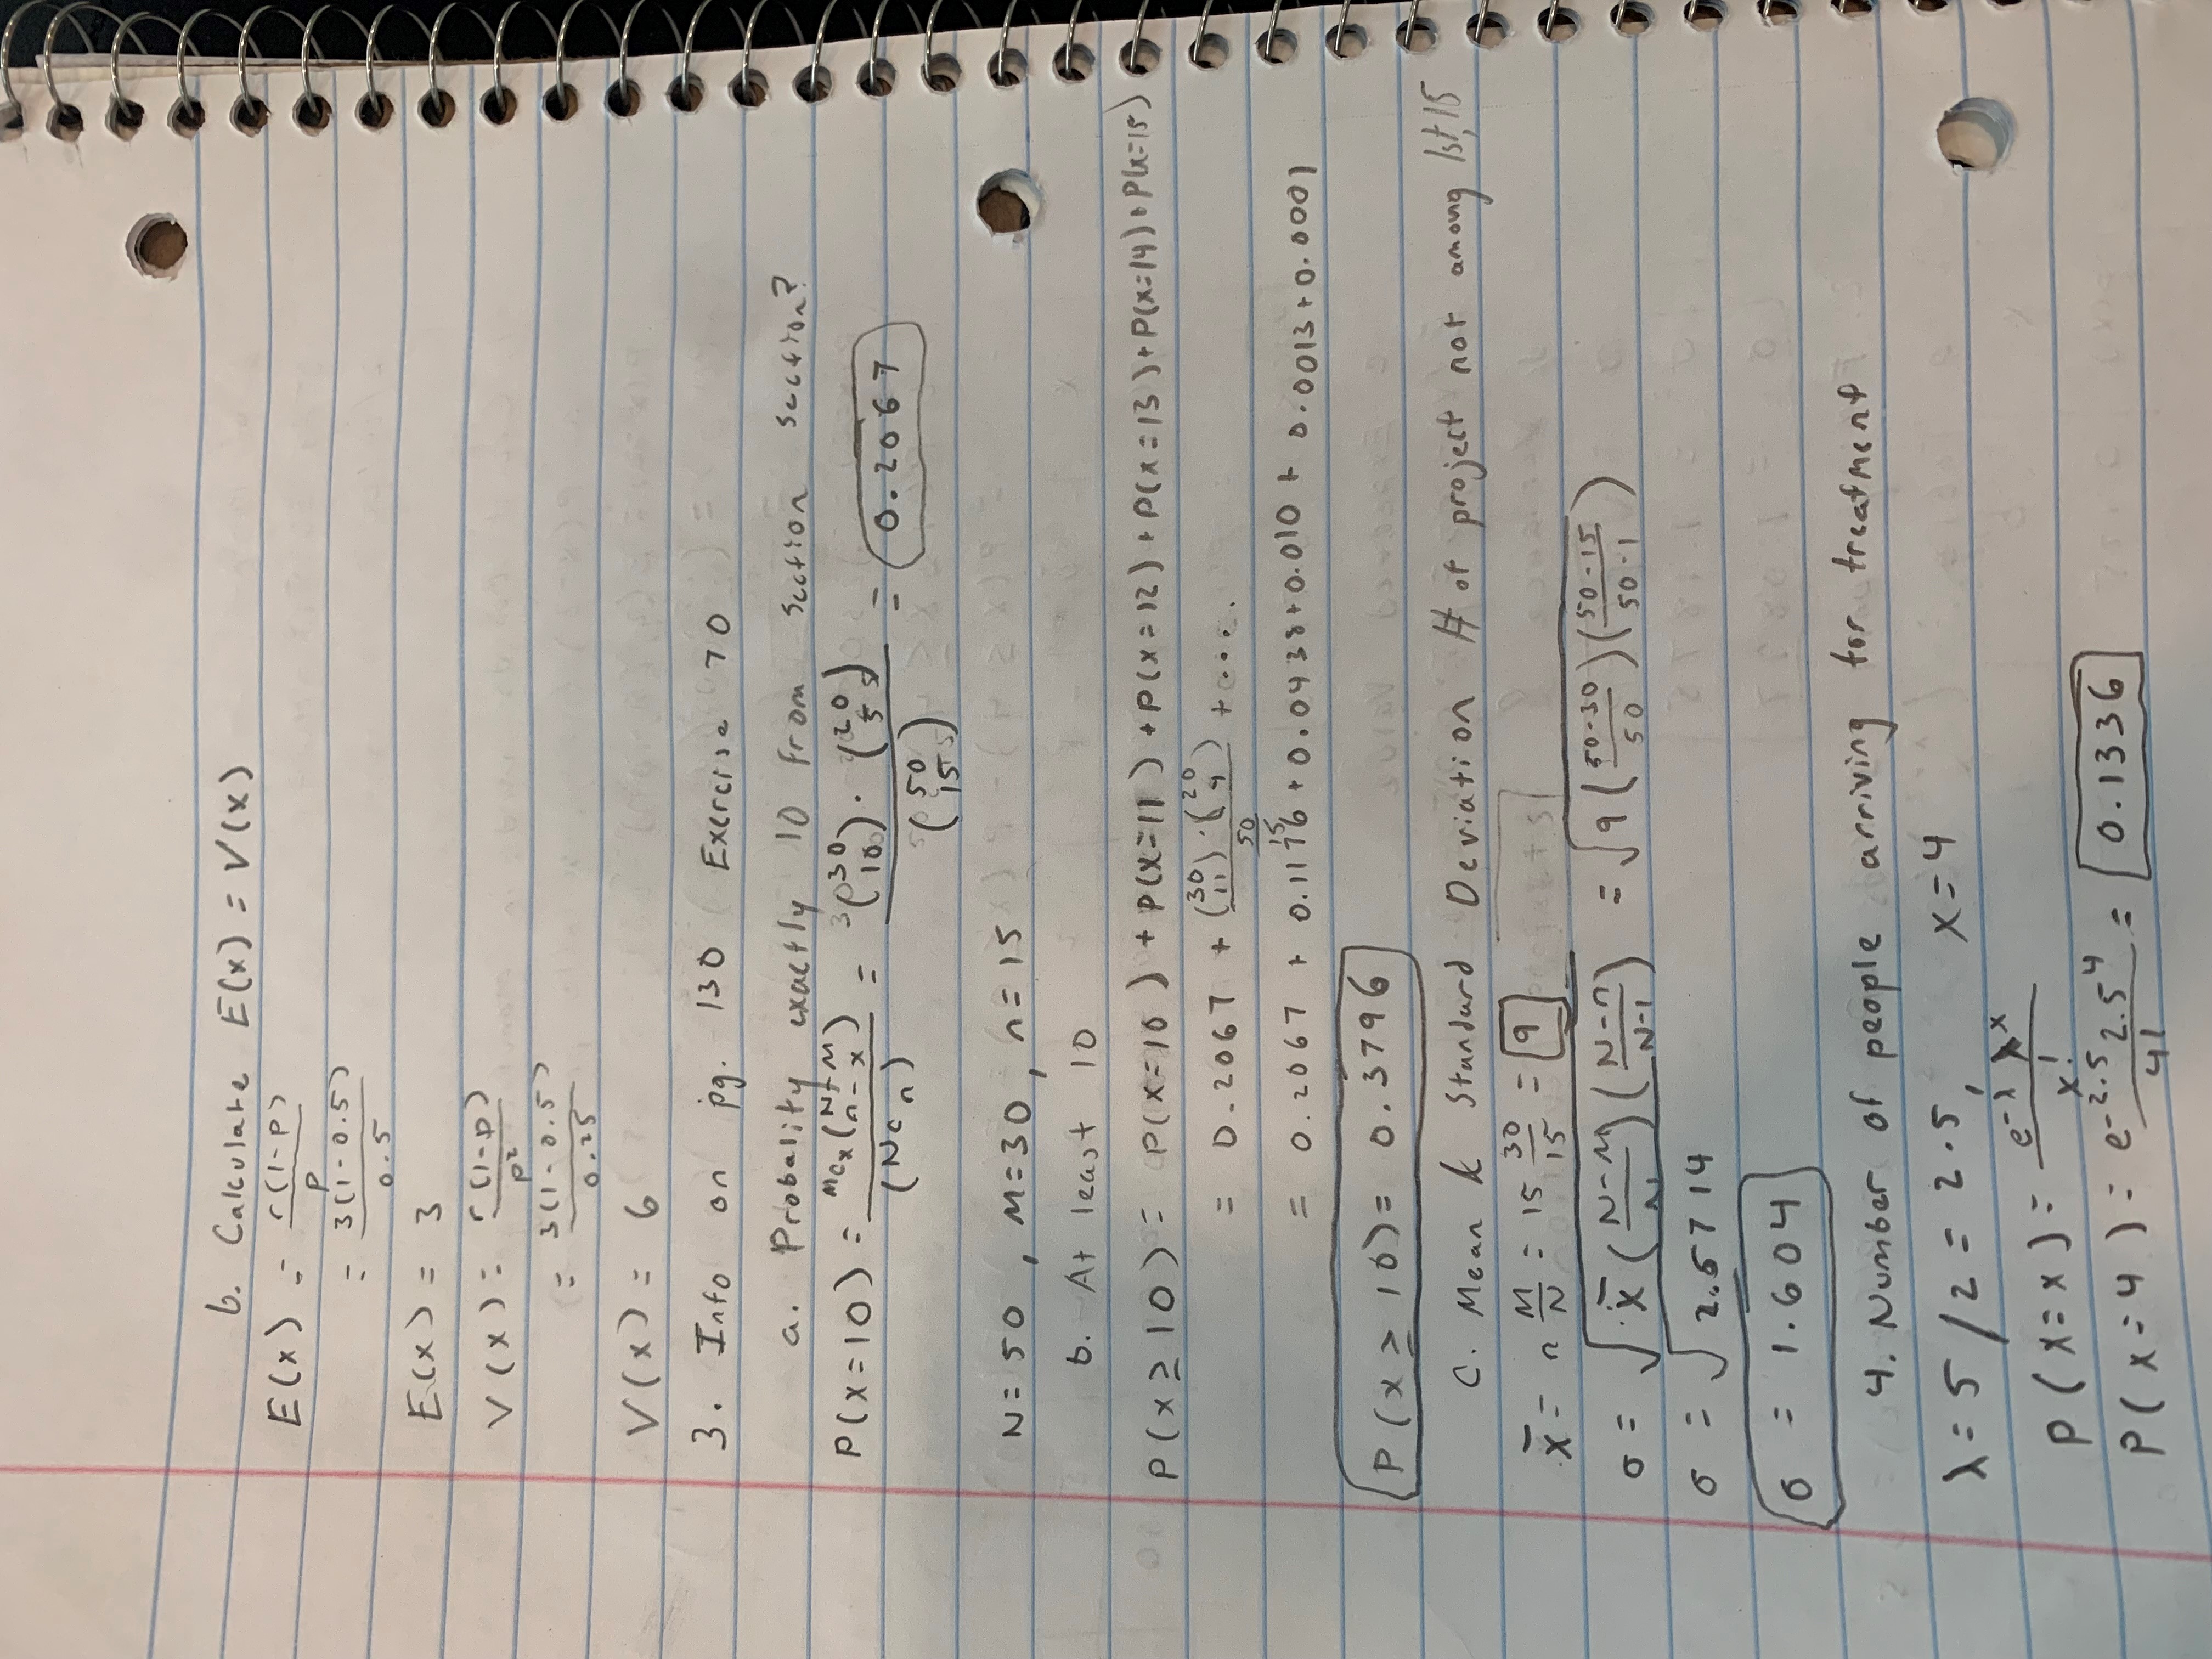 b. Calculate E(x) = V(x)
E(x) = r(1-p) / p
= 3(1-0.5) / 0.5
E(x) = 3
V(x) = r(1-p) / p²
= 3(1-0.5) / 0.25
V(x) = 6
3. Info on pg. 130 Exercise 70
a. Probality exactly 10 from section section?
P(x=10) = MCx (N-M n-x) / (NCn) = (30 10) · (20 5) / (50 15) = 0.2067
N=50, M=30, n=15
b. At least 10
P(x≥10) = P(x=10) + P(x=11) + P(x=12) + P(x=13) + P(x=14) + P(x=15)
= 0.2067 + (30 11) · (20 4) / 50 15 + ....
= 0.2067 + 0.1176 + 0.0438 + 0.010 + 0.0013 + 0.0001
P(x ≥ 10) = 0.3796
C. Mean & Standard Deviation # of project not among 1st, 15
x̄ = n M/N = 15 30/15 = 9
σ = √ x̄ (N-M / N) (N-n / N-1) = √ 9 (50-30 / 50) (50-15 / 50-1)
σ = √ 2.5714
σ = 1.604
4. Number of people arriving for treatment
λ = 5/2 = 2.5, x=4
P(x=x) = e^-λ λ^x / x!
P(x=4) = e^-2.5 2.5^4 / 4! = 0.1336